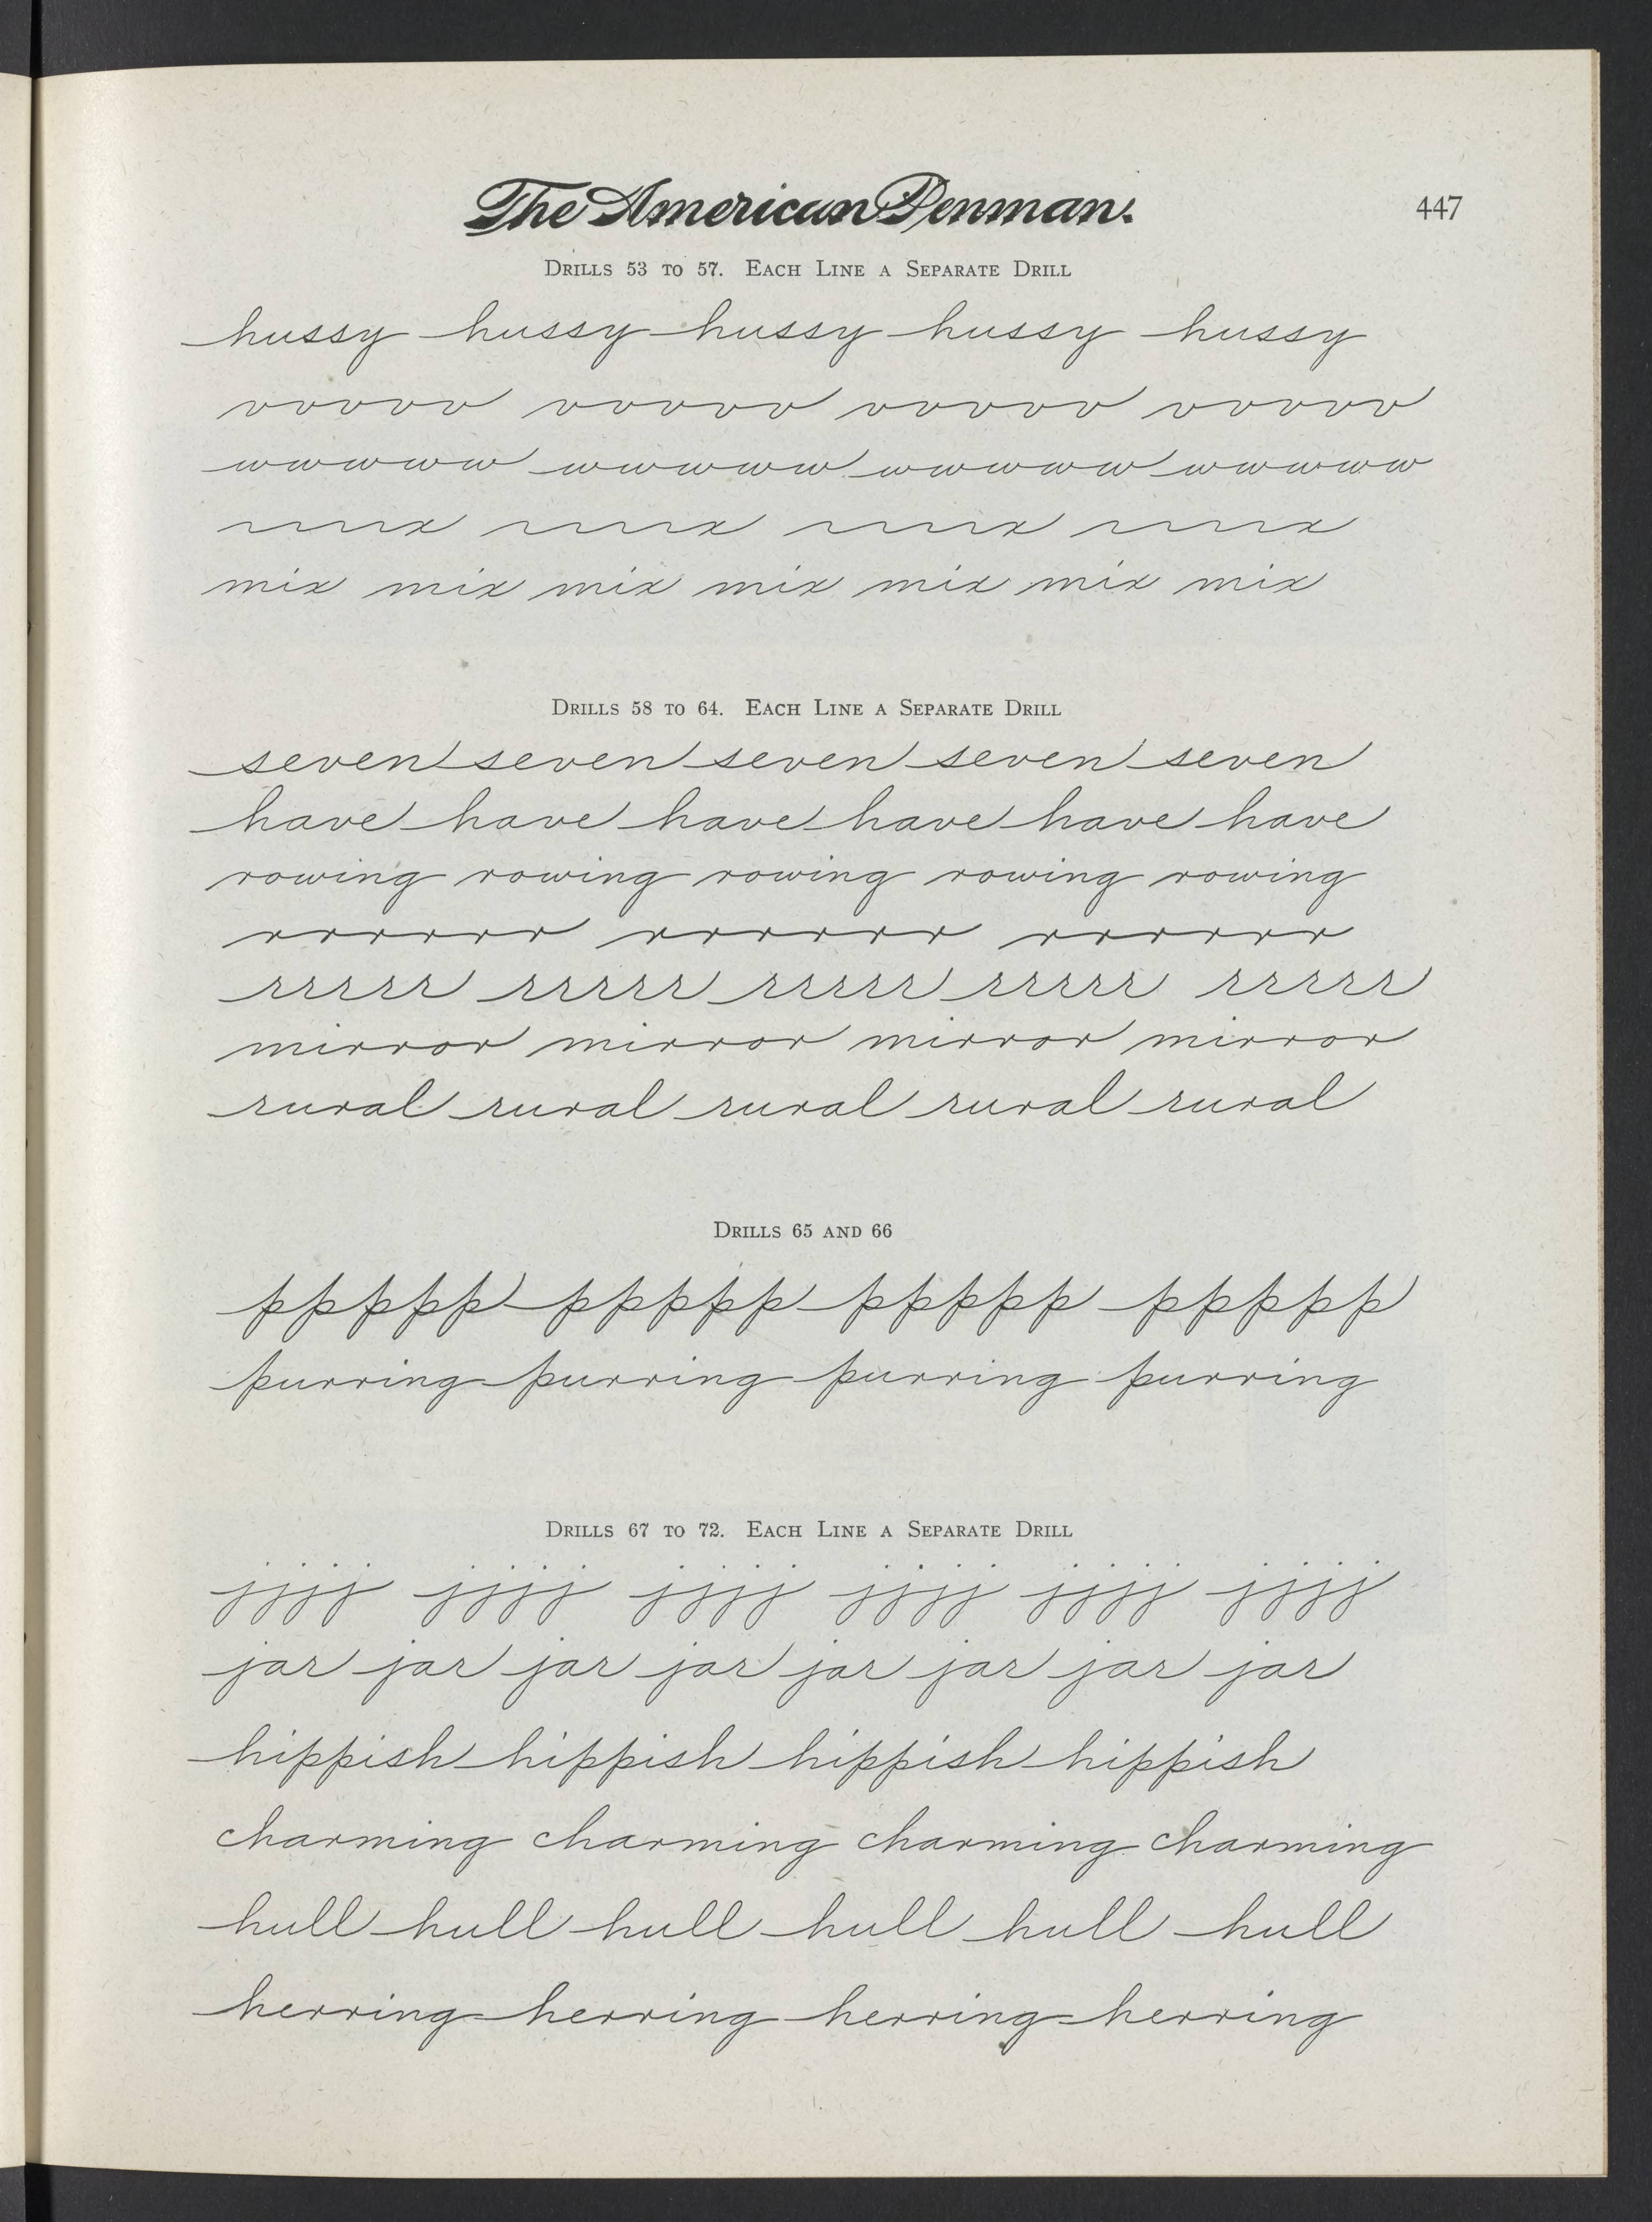 The American Penman.
447
Drills 53 to 57. Each Line a Separate Drill
hussy hussy hussy hussy hussy
vvvvv vvvvv vvvvv vvvvv
wwwwww wwwwww wwwwww wwwwww
x x x x
mix mix mix mix mix mix mix
Drills 58 to 64. Each Line a Separate Drill
seven seven seven seven seven
have have have have have have
rowing rowing rowing rowing rowing
rrrrrr rrrrrr rrrrrr
rrrrr rrrrr rrrrr rrrrr rrrrr
mirror mirror mirror mirror
rural rural rural rural rural
Drills 65 and 66
ppppp ppppp ppppp ppppp
purring purring purring purring
Drills 67 to 72. Each Line a Separate Drill
jjjj jjjj jjjj jjjj jjjj jjjj
jar jar jar jar jar jar jar jar
hippish hippish hippish hippish
charming charming charming charming
hull hull hull hull hull hull
herring herring herring herring